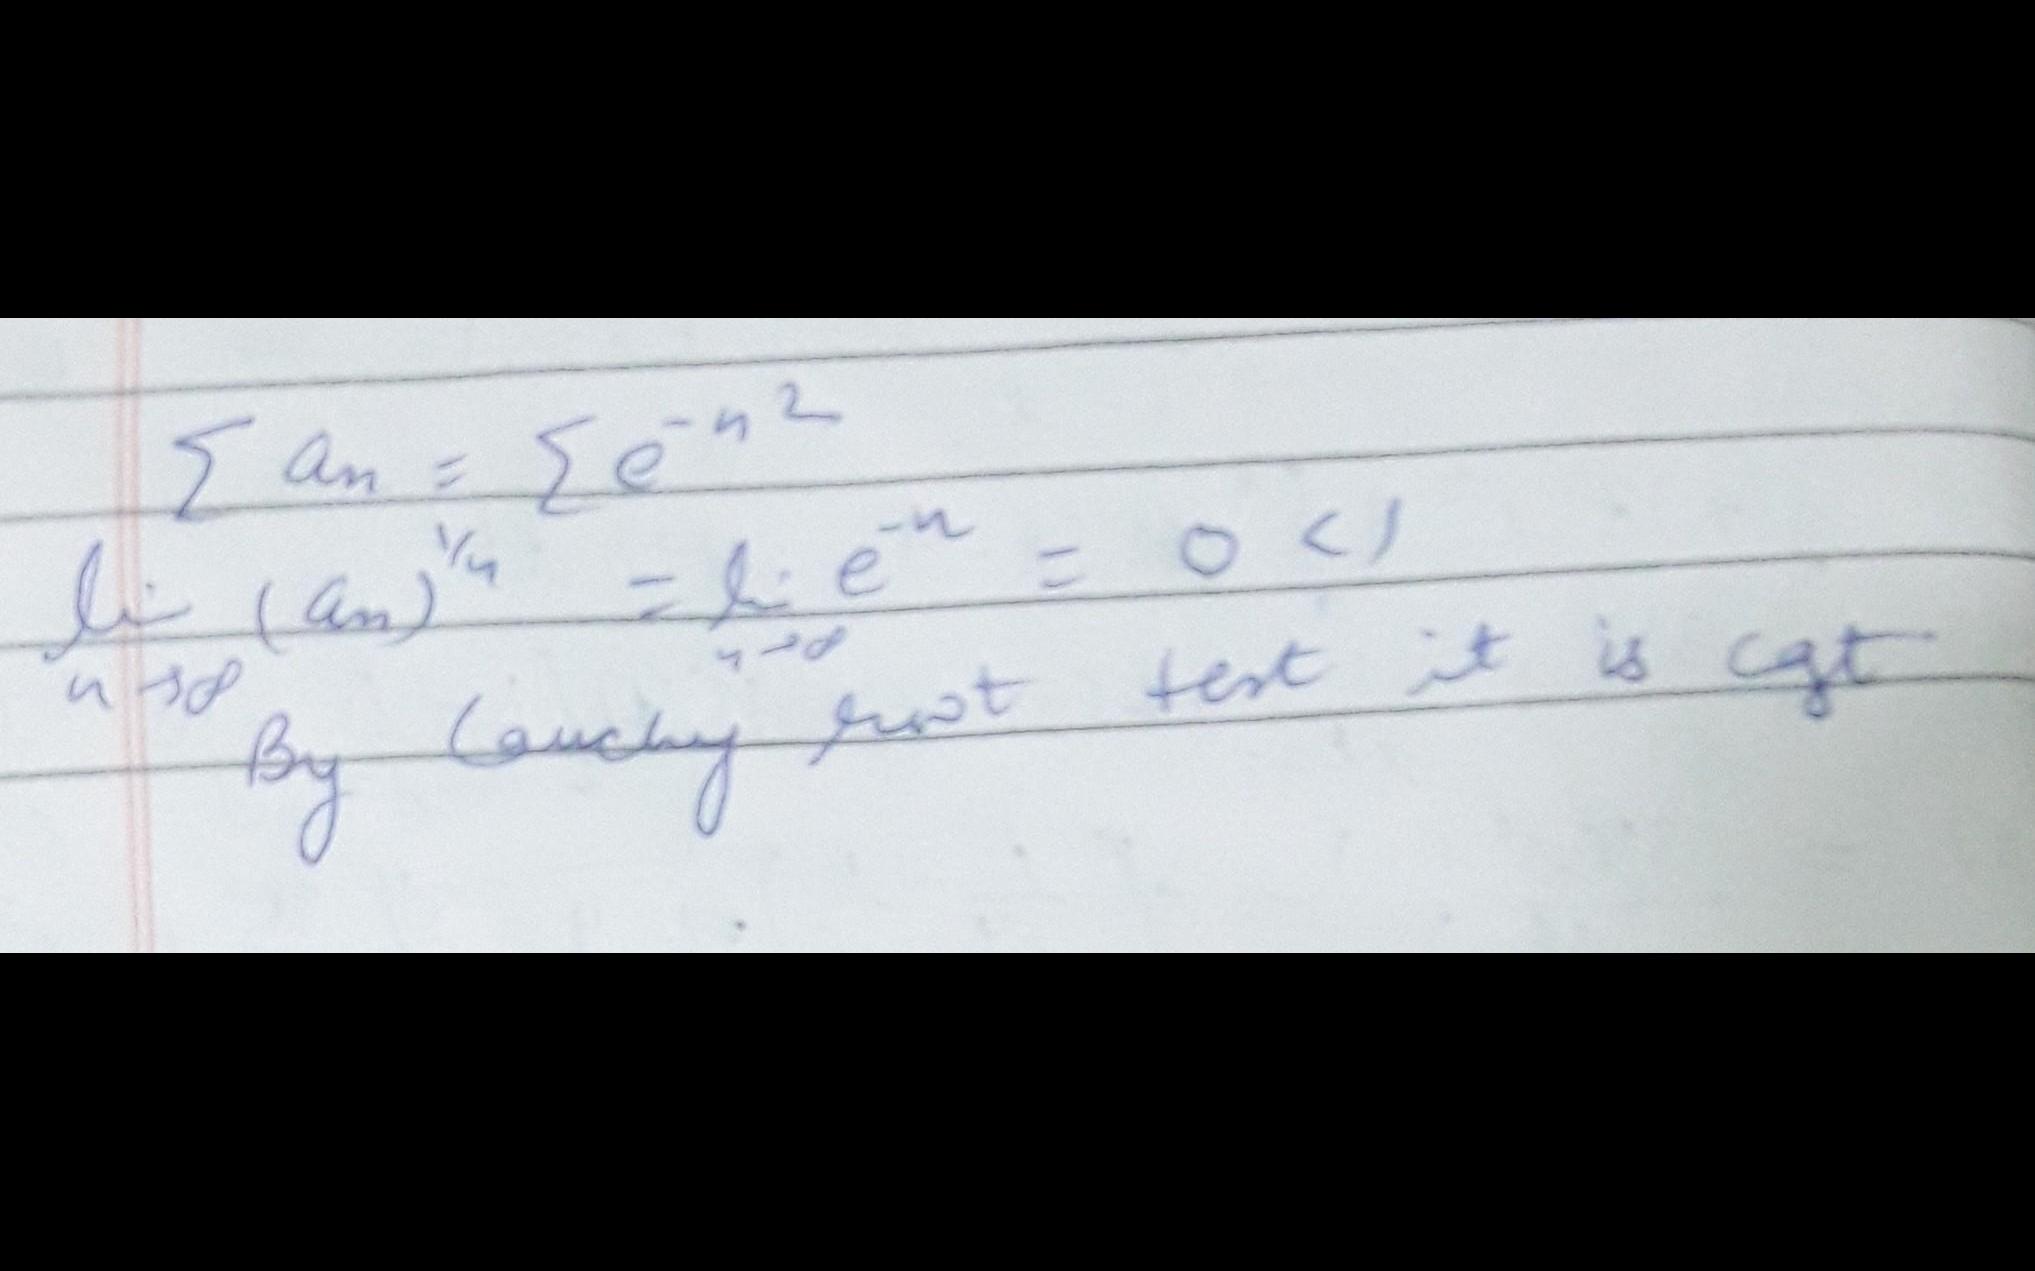 ∑ an = ∑ e^{-n^2}
li_{n→∞} (an)^{1/n} = li_{n→∞} e^{-n} = 0 < 1
By Cauchy root test it is cgt